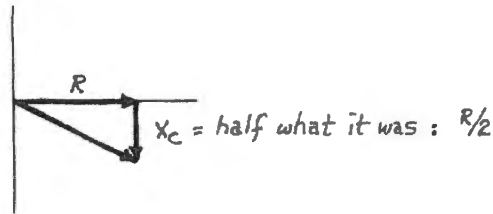 R
X_C = half what it was : R/2